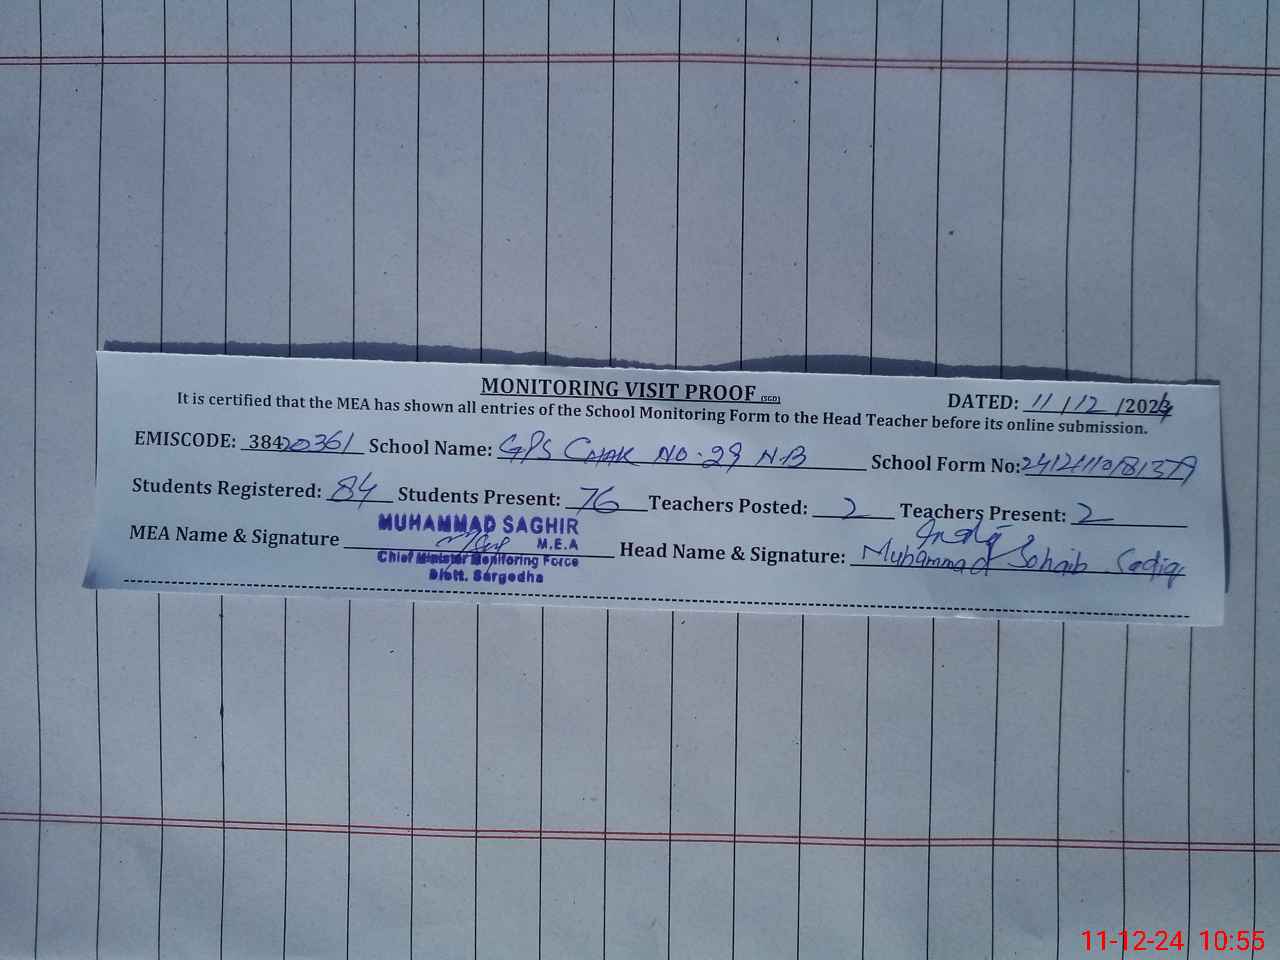 MONITORING VISIT PROOF (SGD)
DATED: 11/12/2024
It is certified that the MEA has shown all entries of the School Monitoring Form to the Head Teacher before its online submission.
EMISCODE: 38420361 School Name: GPS CHAK NO.29 N.B School Form No:
Students Registered: 84 Students Present: 76 Teachers Posted: 2 Teachers Present: 2
MEA Name & Signature MUHAMMAD SAGHIR Head Name & Signature: Muhammad Sohaib Sadiq
M.E.A
Chief Minister Monitoring Force
Distt. Sargodha
11-12-24 10:55